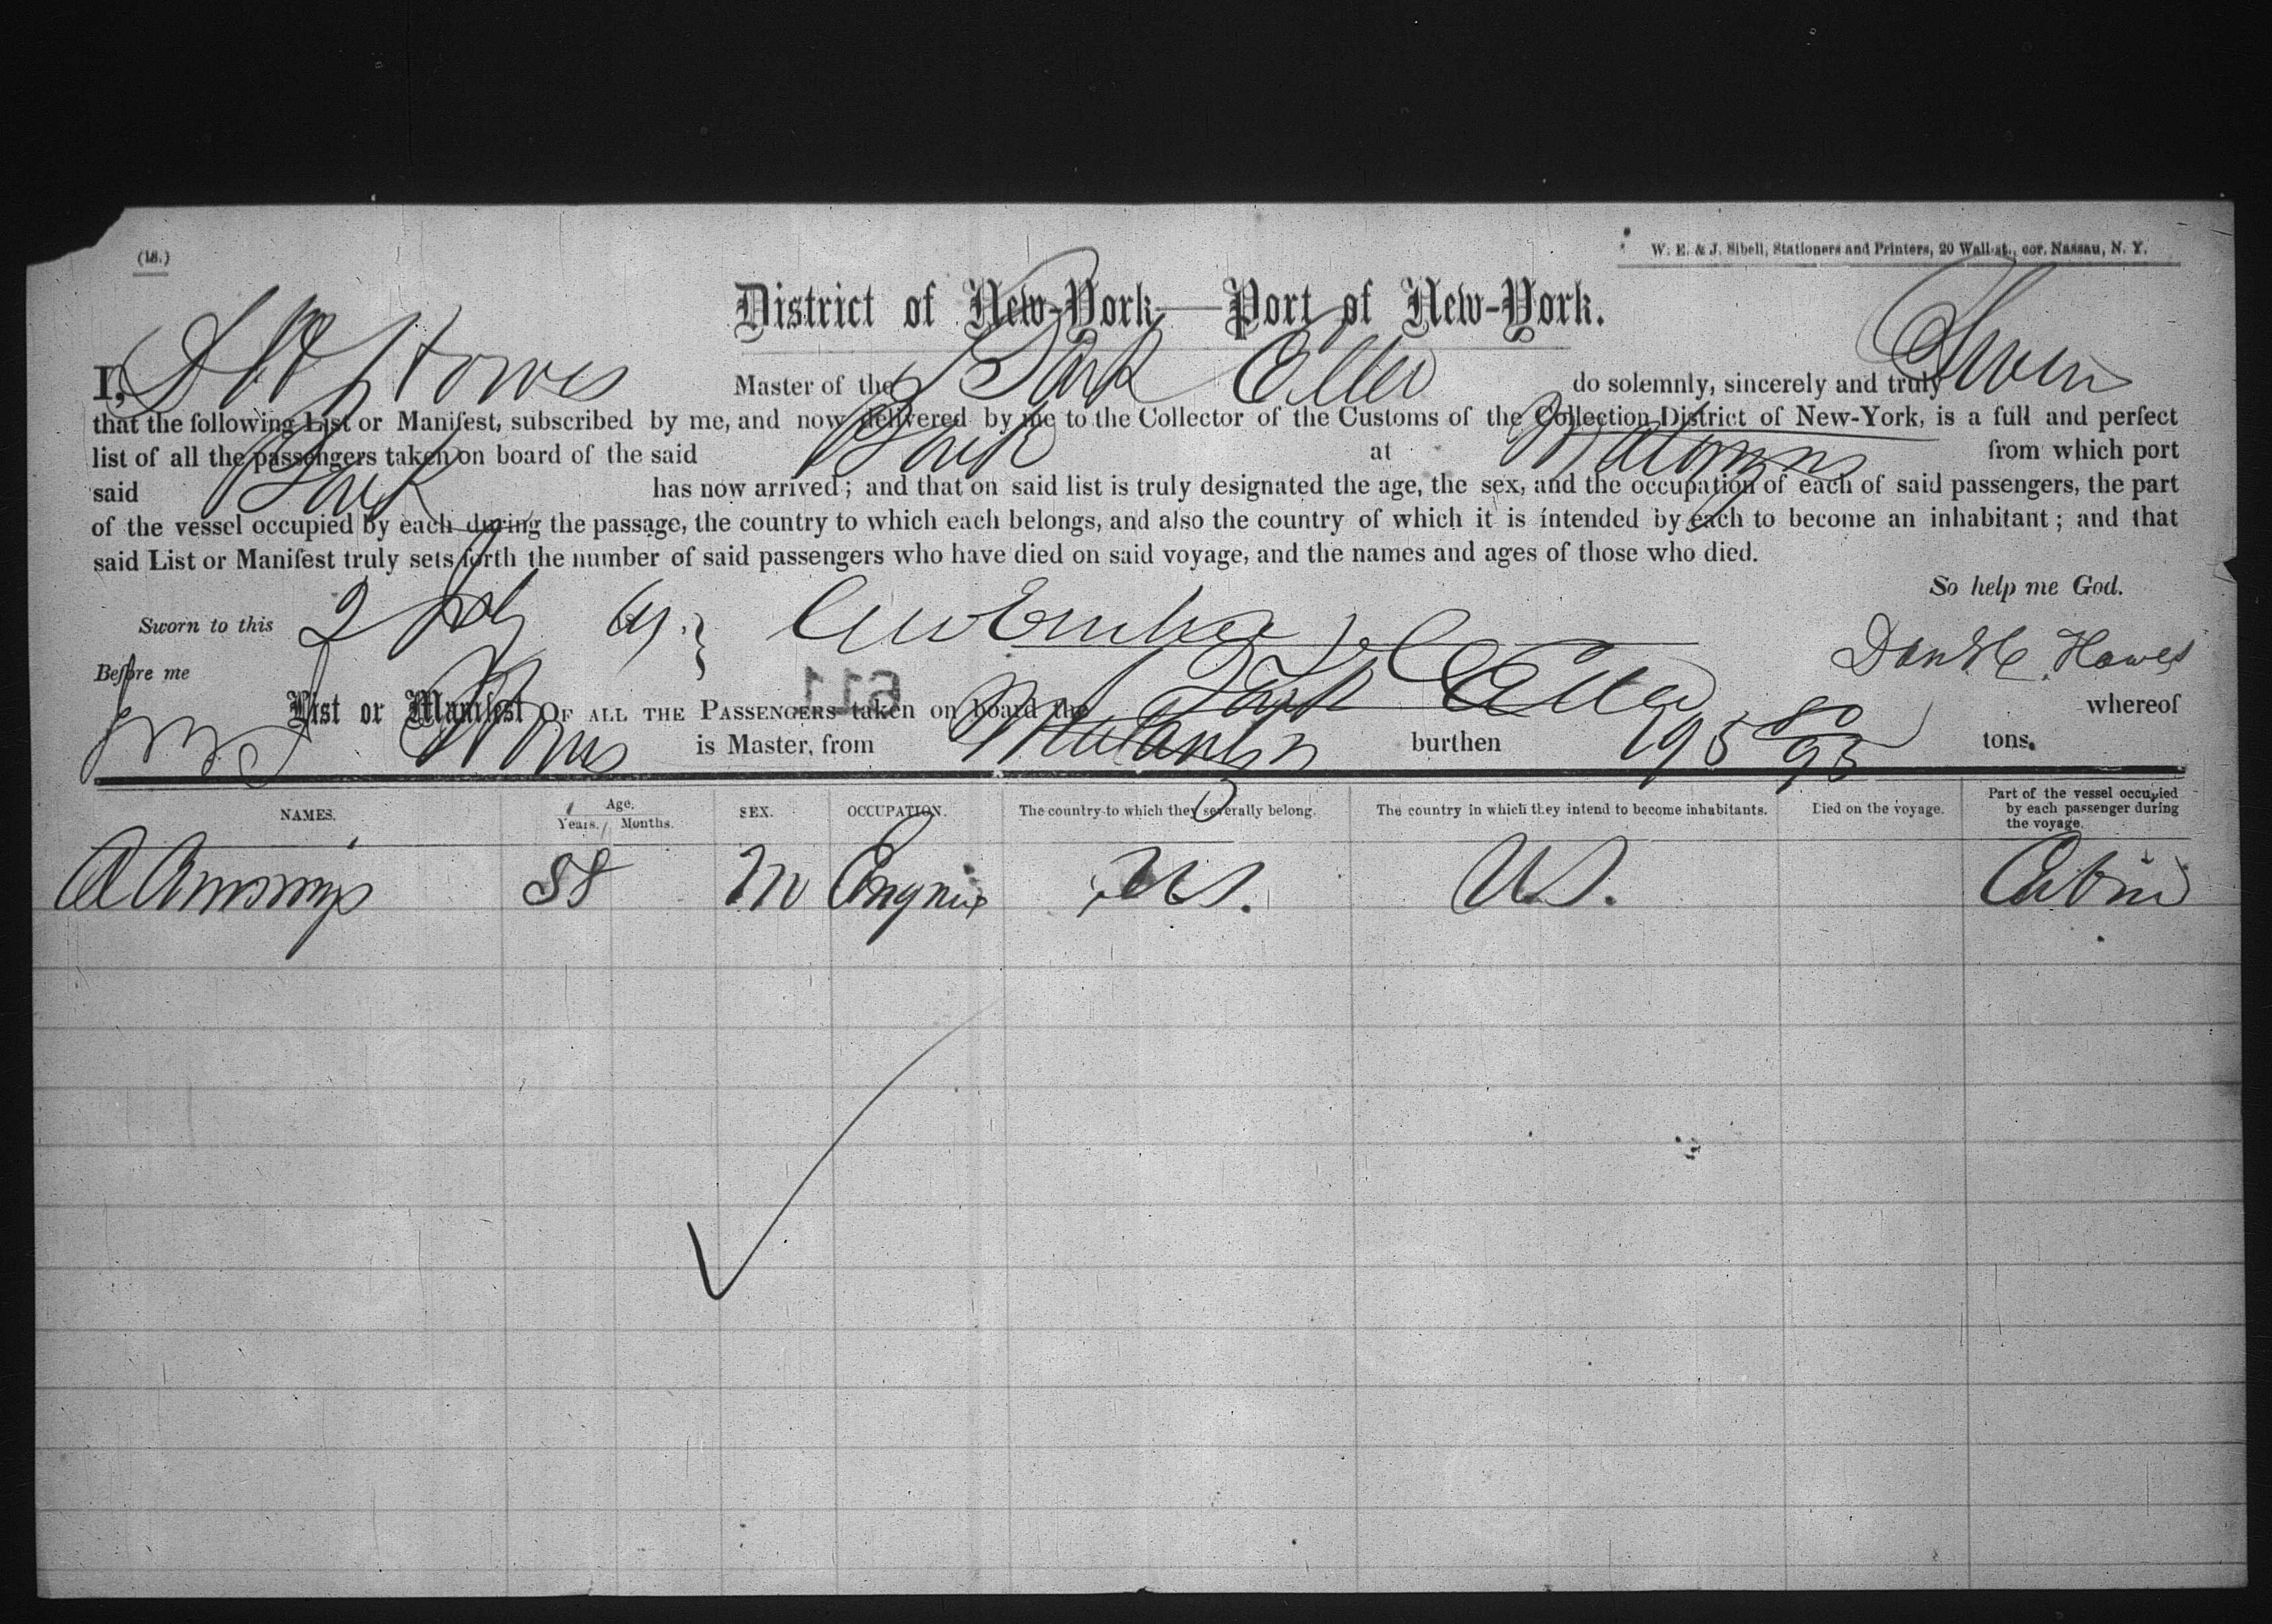 (18.)
W. E. & J. Sibell, Stationers and Printers, 20 Wall-st., cor. Nassau, N. Y.
District of New-York—Port of New-York.
I, Howes Master of the Bark Ella do solemnly, sincerely and truly Swear
that the following List or Manifest, subscribed by me, and now delivered by me to the Collector of the Customs of the Collection District of New-York, is a full and perfect
list of all the passengers taken on board of the said Bark at Matanzas from which port
said Bark has now arrived; and that on said list is truly designated the age, the sex, and the occupation of each of said passengers, the part
of the vessel occupied by each during the passage, the country to which each belongs, and also the country of which it is intended by each to become an inhabitant; and that
said List or Manifest truly sets forth the number of said passengers who have died on said voyage, and the names and ages of those who died.
So help me God.
Sworn to this 2 July
Before me
611
List or Manifest OF ALL THE PASSENGERS taken on board the Bark Ella whereof
Howes is Master, from Matanzas burthen 195 80/95 tons.
NAMES. Age. Years. Months. SEX. OCCUPATION. The country to which they severally belong. The country in which they intend to become inhabitants. Died on the voyage. Part of the vessel occupied by each passenger during the voyage.
38 M Engineer U S. U S. Cabin